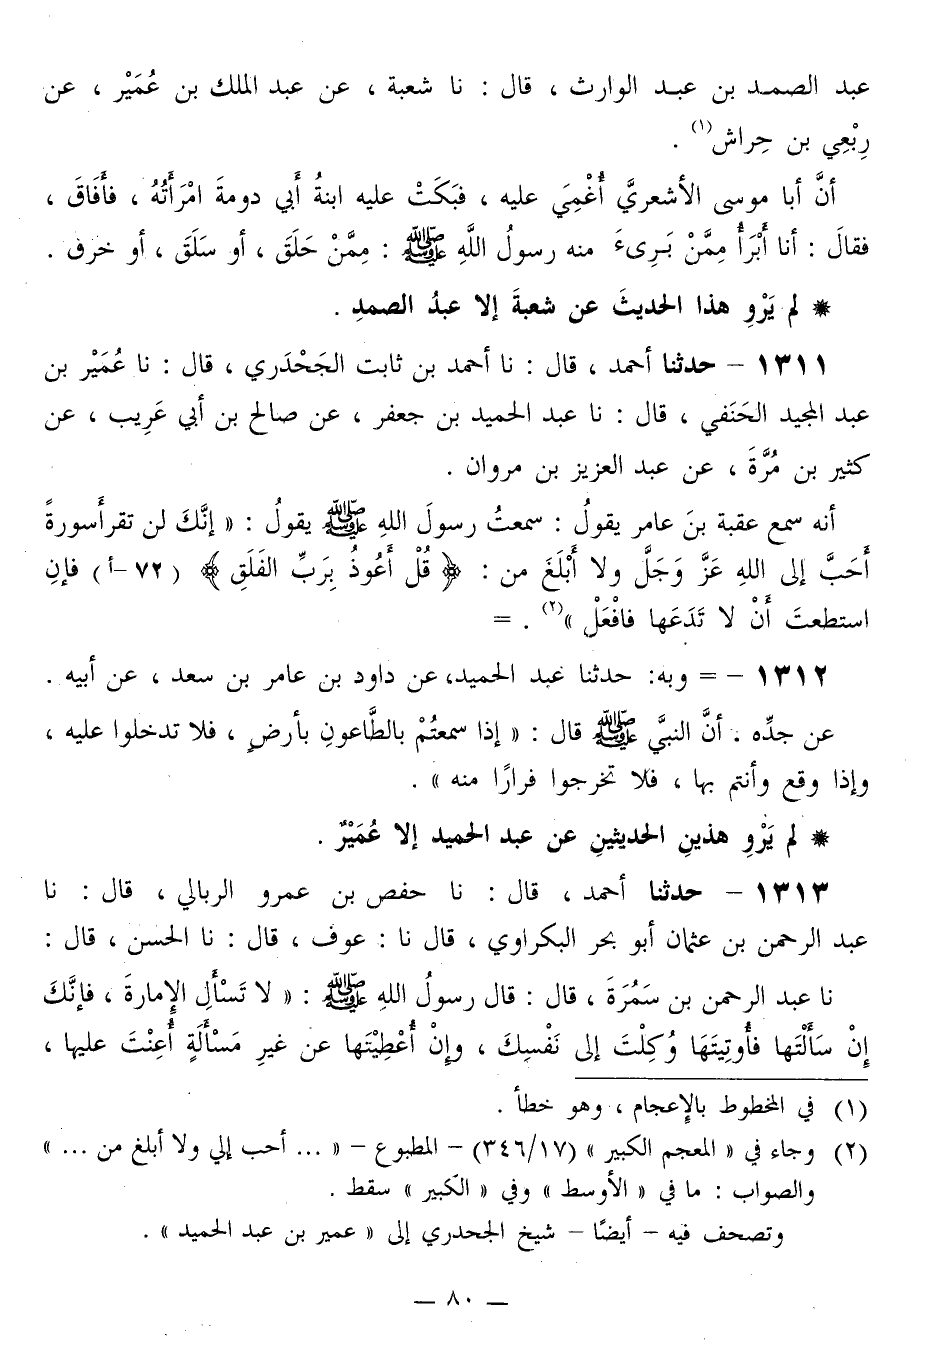 عبد الصمـد بن عبـد الوارث ، قال : نا شعبة ، عن عبد الملك بن عُمَيْر ، عن
رِبْعِي بن حِراش(١) .
أنَّ أبا موسى الأشعريَّ أُغْمِيَ عليه ، فبَكَتْ عليه ابنةُ أَبي دومةَ امْرَأَتُهُ ، فأَفَاقَ ،
فقالَ : أنا أَبْرَأُ مِمَّنْ بَـرِىءَ منه رسولُ اللَّهِ ﷺ : مِمَّنْ حَلَقَ ، أو سَلَقَ ، أو خرق .
* لم يَرْوِ هذا الحديثَ عن شعبةَ إلا عبدُ الصمدِ .
١٣١١ – حدثنا أحمد ، قال : نا أحمد بن ثابت الجَحْدَري ، قال : نا عُمَيْر بن
عبد المجيد الحَنَفي ، قال : نا عبد الحميد بن جعفر ، عن صالح بن أبي عَرِيب ، عن
كثير بن مُرَّةَ ، عن عبد العزيز بن مروان .
أنه سمع عقبة بنَ عامر يقولُ : سمعتُ رسولَ اللهِ ﷺ يقولُ : « إنَّكَ لن تقرأسورةً
أَحَبَّ إلى اللهِ عَزَّ وَجَلَّ ولا أَبْلَغَ من : ﴿ قُلْ أَعُوذُ بِرَبِّ الفَلَقِ ﴾ ( ٧٢–أ ) فإنِ
استطعتَ أَنْ لا تَدَعَها فافْعَلْ »(٢) . =
١٣١٢ – = وبه: حدثنا عبد الحميد، عن داود بن عامر بن سعد ، عن أبيه .
عن جدِّه . أنَّ النبيَّ ﷺ قال : « إذا سمعتُمْ بالطَّاعونِ بأرضٍ ، فلا تدخلوا عليه ،
وإذا وقع وأنتم بها ، فلا تخرجوا فرارًا منه » .
* لم يَرْوِ هذينِ الحديثينِ عن عبد الحميد إلا عُمَيْرٌ .
١٣١٣ – حدثنا أحمد ، قال : نا حفص بن عمرو الربالي ، قال : نا
عبد الرحمن بن عثمان أبو بحر البكراوي ، قال نا : عوف ، قال : نا الحسن ، قال :
نا عبد الرحمن بن سَمُرَةَ ، قال : قال رسولُ اللهِ ﷺ : « لا تَسْأَلِ الإمارةَ ، فإنَّكَ
إِنْ سَأَلْتَها فأُوتِيتَهَا وُكِلْتَ إلى نَفْسِكَ ، وإنْ أُعْطِيْتَها عن غيرِ مَسْأَلَةٍ أُعِنْتَ عليها ،
(١) في المخطوط بالإعجام ، وهو خطأ .
(٢) وجاء في « المعجم الكبير » (٣٤٦/١٧) – المطبوع – « ... أحب إلي ولا أبلغ من ... »
والصواب : ما في « الأوسط » وفي « الكبير » سقط .
وتصحف فيه – أيضًا – شيخ الجحدري إلى « عمير بن عبد الحميد » .
— ٨٠ —